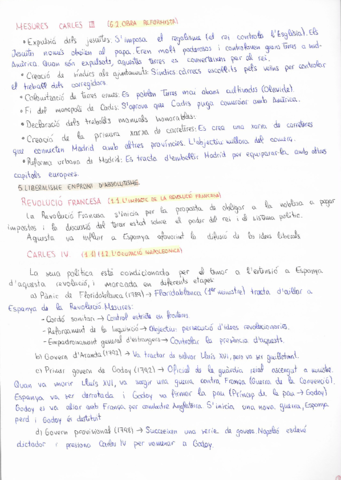 MESURES CARLES III (6.2. OBRA REFORMISTA)
• Expulsió dels jesuïtes: S'imposa el regalisme (el rei controla l'Església). Els
Jesuïtes només obeïen al papa. Eren molt poderosos i controlaven grans terres a sud-
Amèrica. Quan són expulsats, aquestes terres es converteixen per al rei.
• Creació de síndics als ajuntaments: Síndics càrrecs escollits pels veïns per controlar
el treball dels corregidors
• Colonització de terres ermes: Es poblen terres mai abans cultivades (Olavide)
• Fi del monopoli de Cadis: S'aprova que Cadis pugui comerciar amb Amèrica.
• Declaració dels treballs manuals honorables:
• Creació de la primera xarxa de carreteres: Es crea una xarxa de carreteres
que connecten Madrid amb altres províncies. L'objectiu millora del comerç.
• Reforma urbana de Madrid: Es tracta d'embellir Madrid per equiparar-la amb altres
capitals europees.
5. LIBERALISME ENFRONT D'ABSOLUTISME
REVOLUCIÓ FRANCESA (1.1. L'IMPACTE DE LA REVOLUCIÓ FRANCESA)
La Revolució Francesa s'inicia per la proposta de obligar a la noblesa a pagar
impostos i la discussió del tercer estat sobre el poder del rei i el sistema polític.
Aquesta va influir a Espanya afavorint la difusió de les idees liberals
CARLES IV (1.2. L'OCUPACIÓ NAPOLEÒNICA)
La seva política està condicionada per el temor a l'extensió a Espanya
d'aquesta revolució, i marcada en diferents etapes:
a) Pànic de Floridablanca (1789) → Floridablanca (1er ministre) tracta d'aïllar a
Espanya de la Revolució. Mesures:
- Cordó sanitari → Control estricte en fronteres
- Reforçament de la Inquisició → Objectiu: persecució d'idees revolucionàries.
- Empadronament general d'estrangers → Controlar la presència d'aquests.
b) Govern d'Aranda (1792) → Va tractar de salvar Lluís XVI, però va ser guillotinat.
c) Primer govern de Godoy (1792) → Oficial de la guàrdia reial ascendit a ministre.
Quan va morir Lluís XVI, va sorgir una guerra contra França (Guerra de la Convenció).
Espanya va ser derrotada i Godoy va firmar la pau (Príncep de la pau → Godoy)
Godoy es va aliar amb França per combatre Anglaterra. S'inicia una nova guerra, Espanya
perd i Godoy és destituït
d) Govern provisional (1798) → Succeeixen una sèrie de governs. Napoleó esdevé
dictador i pressiona Carles IV per nomenar a Godoy.